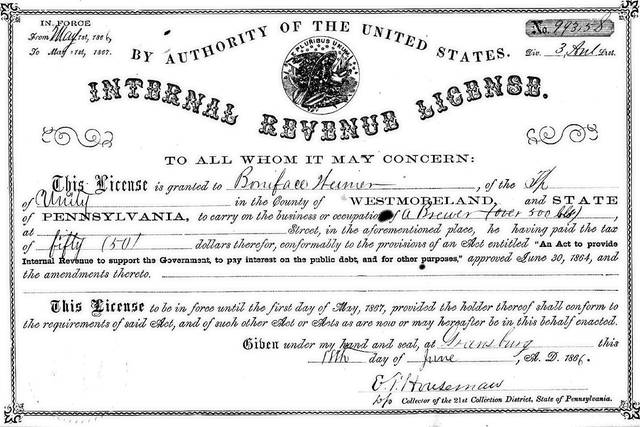 IN FORCE
From May 1st, 1866,
To May 1st, 1867.
No. 943.58
Div. 3, Dist.
BY AUTHORITY OF THE UNITED STATES.
E PLURIBUS UNUM
INTERNAL REVENUE LICENSE.
TO ALL WHOM IT MAY CONCERN:
This License is granted to Boniface Heimer, of the Tp
of Unity in the County of WESTMORELAND, and STATE
of PENNSYLVANIA, to carry on the business or occupation of a Brewer (over 500 bls),
at Street, in the aforementioned place, he having paid the tax
of fifty (50) dollars therefor, conformably to the provisions of an Act entitled "An Act to provide
Internal Revenue to support the Government, to pay interest on the public debt, and for other purposes," approved June 30, 1864, and
the amendments thereto.
This License to be in force until the first day of May, 1867, provided the holder thereof shall conform to
the requirements of said Act, and of such other Act or Acts as are now or may hereafter be in this behalf enacted.
Given under my hand and seal, at Greensburg this
day of June, A. D. 1866.
Houseman
Collector of the 21st Collection District, State of Pennsylvania.